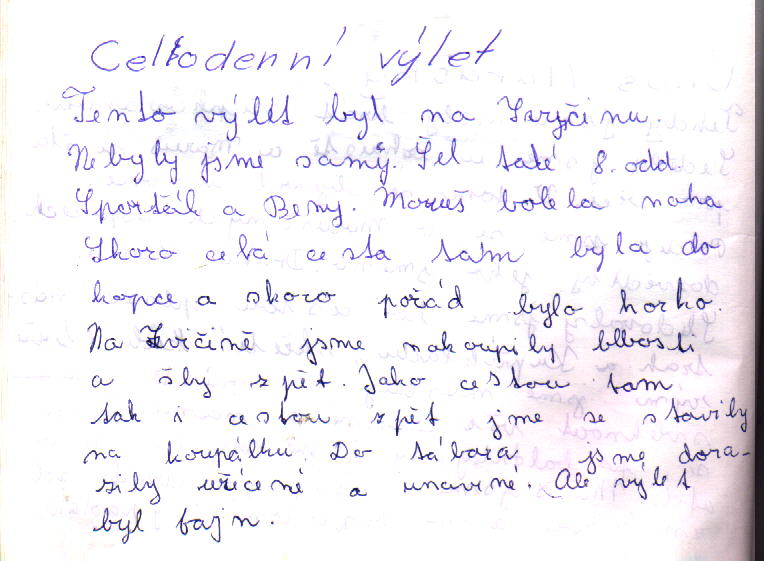 Celkodenní výlet
Tento výlet byl na Zvyčinu.
Nebyly jsme samy. Šel také 8. odd.
Sporťák a Beny. Moruš bolela noha
Skoro celá cesta tam byla do
kopce a skoro pořád bylo horko.
Na Zvičině jsme nakoupily blbosti
a šly zpět. Jako cestou tam
tak i cestou zpět jme se stavily
na koupálku. Do tábora jsme dora-
zily uřícené a unavené. Ale výlet
byl fajn.